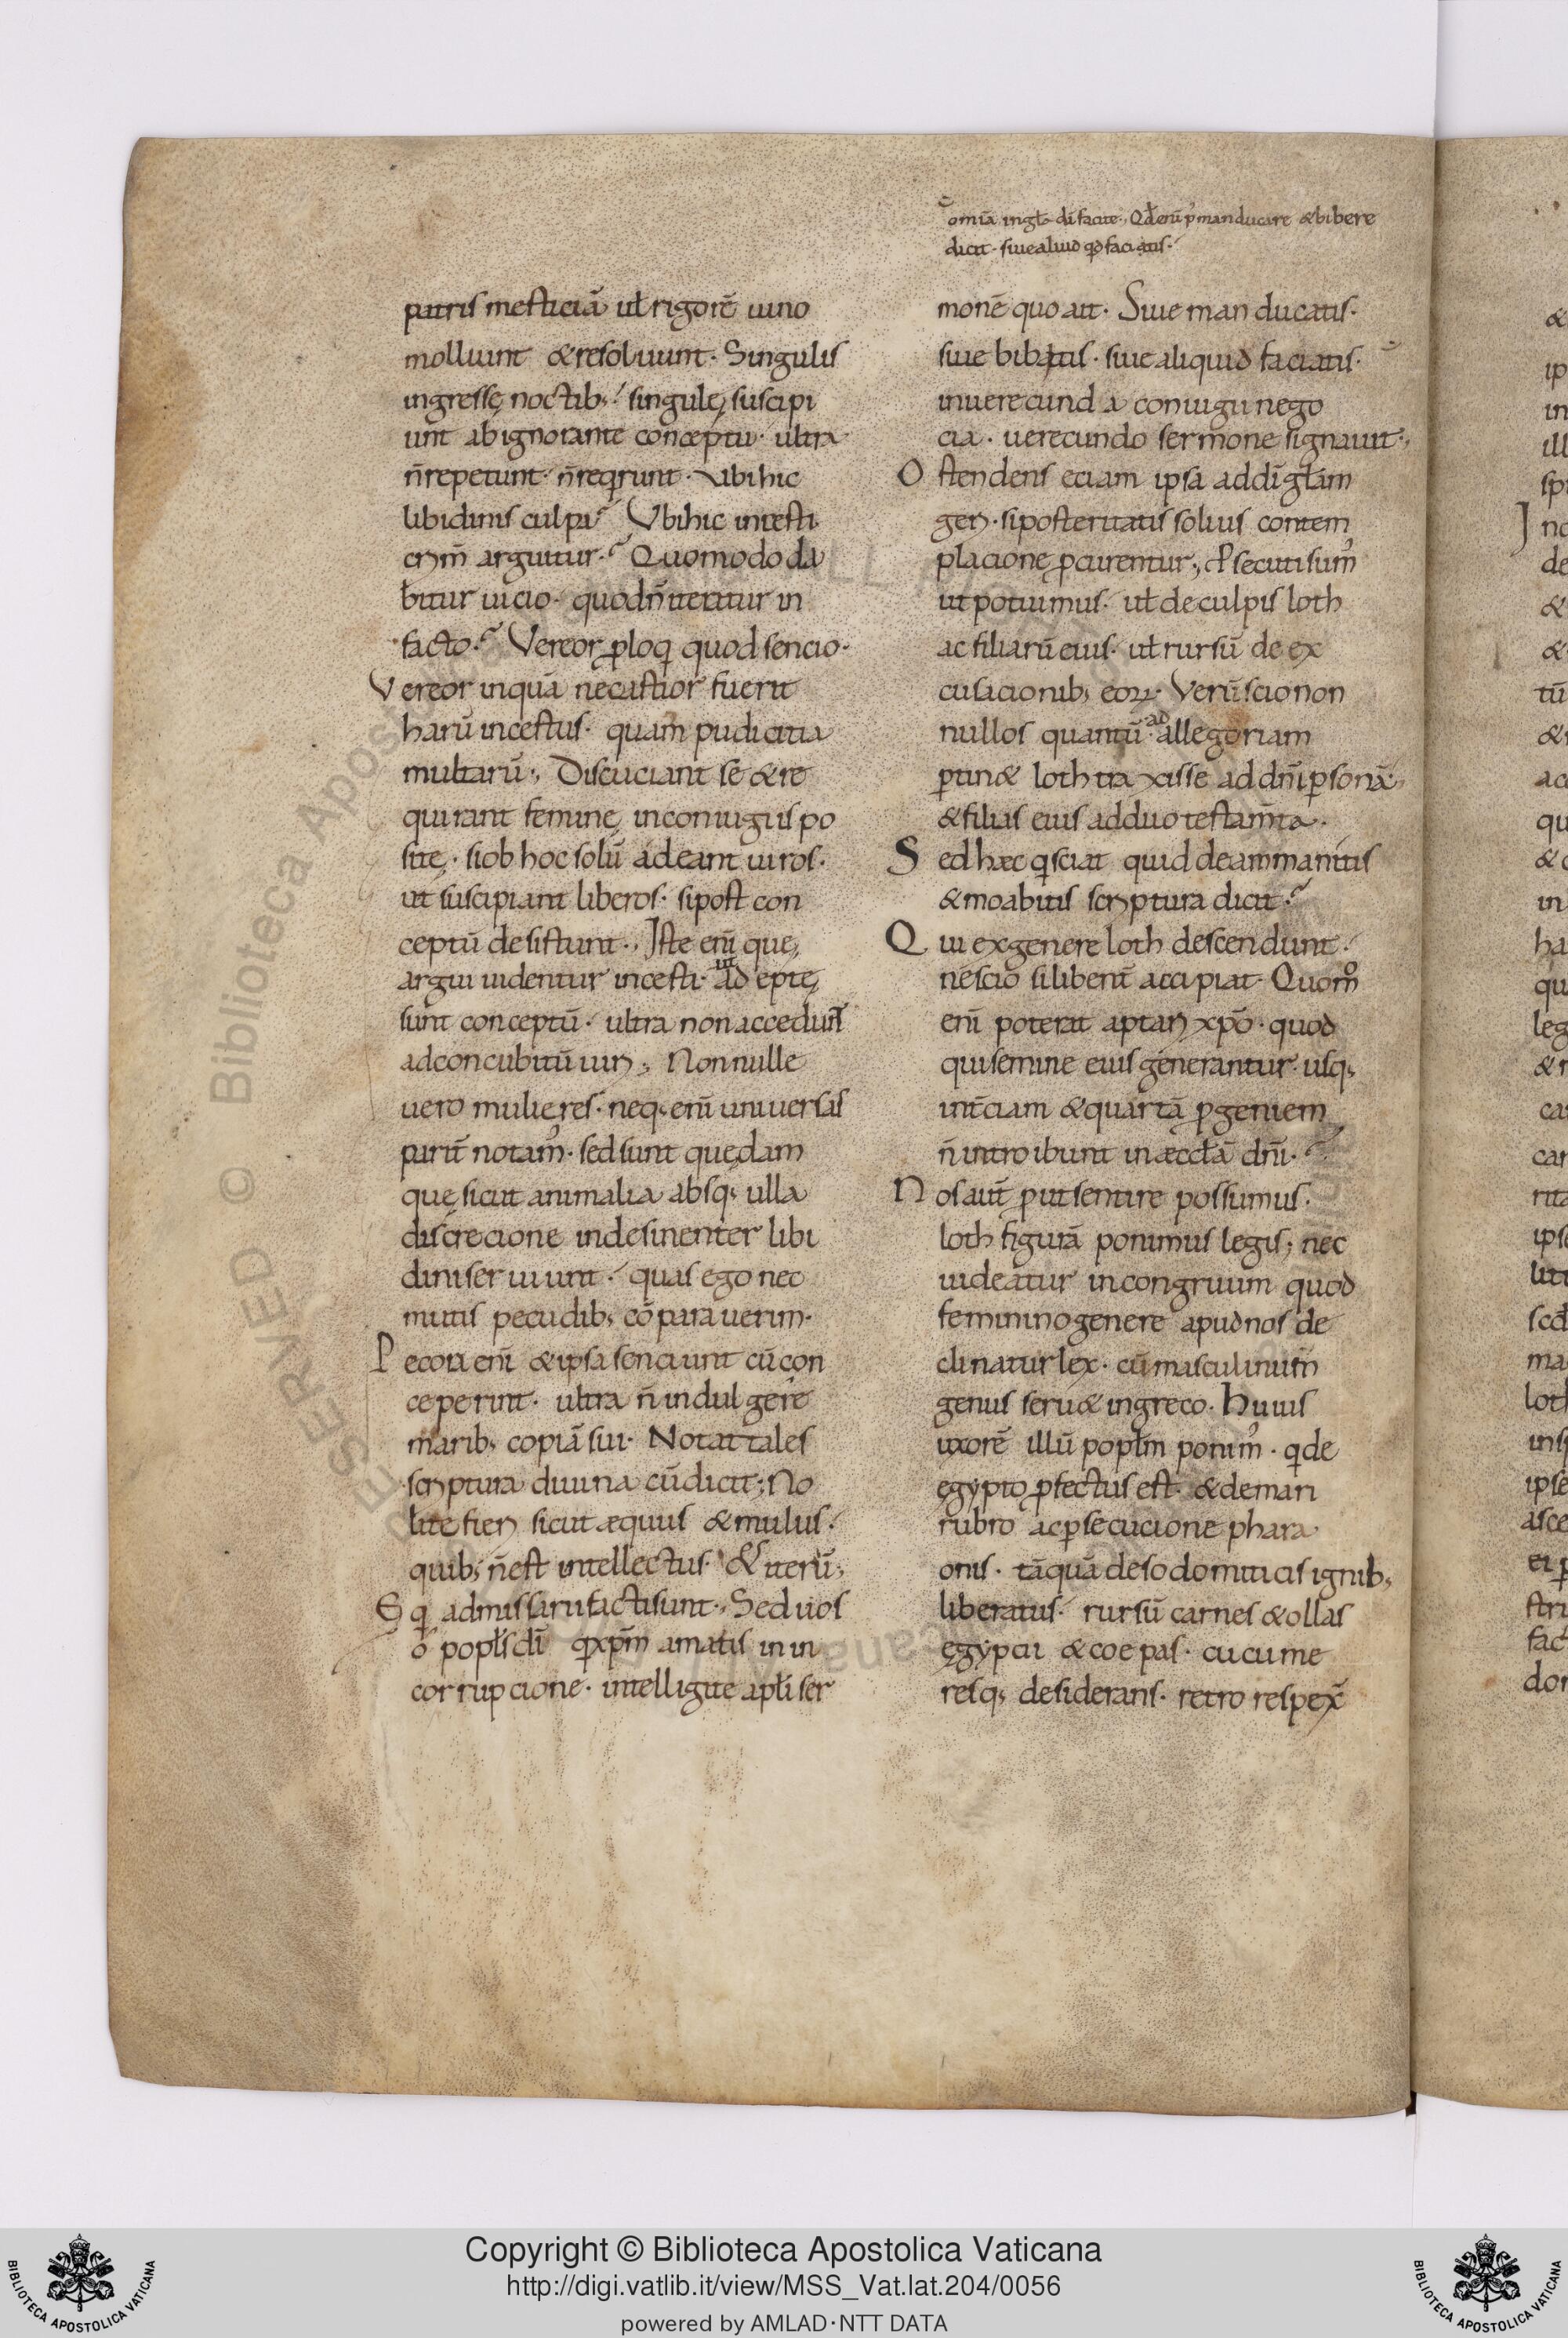 omīa in głā dī facite. Qd̄ enī p̄ manducare & bibere
dicit. siue aliud qd̄ faciatis.
patris mesticiā ut̄ł rigorē uino
molliunt & resoluunt. Singulis
ingressę noctib; singulę suscipi
unt ab ignorante conceptū. ultra
n̄ repetunt. n̄ reqrunt. Vbi hic
libidinis culpa? Vbi hic incesti
crim̄ arguitur? Quomodo da
bitur uicio. quod n̄ iteratur in
facto? Vereor ploqi quod sencio.
Vereor inquā ne castior fuerit
harū incestus. quam pudicitia
multarū; Discuciant se & re
quirant feminę in coniugiis po
sitę. si ob hoc solū adeant uiros.
ut suscipiant liberos. si post con
ceptū desistunt. Iste enī quę
argui uidentur incesti. ut adeptę
sunt conceptū. ultra non accedunt
ad concubitū uiri; Nonnulle
uero mulieres. neq; enī uniuersas
parit̄ notam᾿. sed sunt quędam
quę sicut animalia absq; ulla
discrecione indesinenter libi
dini seruiunt. quas ego nec
mutis pecudib; cōparauerim.
Pecora enī & ipsa senciunt cū con
ceperint. ultra n̄ indulgere
marib; copiā sui. Notat tales
scriptura diuina cū dicit; No
lite fieri sicut æquus & mulus.
quib; n̄ est intellectus. & iterū;
Eqi admissarii facti sunt. Sed uos
o popłs dī qi xp̄m amatis in in
corrupcione. intelligite apłi ser
monē quo ait. Siue manducatis.
siue bibatis. siue aliquid faciatis.
inuerecunda coniugii nego
cia. uerecundo sermone signauit;
Ostendens eciam ipsa ad dī głam
geri. si posteritatis solius contem
placione pcurentur; Psecuti sum᾿
ut potuimus. uł de culpis loth
ac filiarū eius. uł rursū de ex
cusacionib; eoꝝ. Verū scio non
nullos quantū ad allegoriam
ptin& loth traxisse ad dn̄i psonā;
& filias eius ad duo testam̄ta.
Sed hæc qi sciat quid de ammanitis
& moabitis scriptura dicit?
Qui ex genere loth descendunt.
nescio si libent̄ accipiat. Quom̊
enī poterit aptari xp̄o. quod
qui semine eius generantur. usq;
in t̄ciam & quartā pgeniem
n̄ introibunt in æccłā dn̄i.
Nos aut̄ put sentire possumus.
loth figurā ponimus legis; nec
uideatur incongruum quod
feminino genere apud nos de
clinatur lex. cū masculinum
genus seru& in greco. Huius
uxorē illū popłm ponim᾿. qi de
egypto pfectus est. & de mari
rubro ac psecucione phara
onis. tāquā de sodomiticis ignib;
liberatus. rursū carnes & ollas
ęgypcii & coepas. cucume
resq; desiderans. retro respex̄
Copyright © Biblioteca Apostolica Vaticana
http://digi.vatlib.it/view/MSS_Vat.lat.204/0056
powered by AMLAD·NTT DATA
BIBLIOTECA APOSTOLICA VATICANA
BIBLIOTECA APOSTOLICA VATICANA